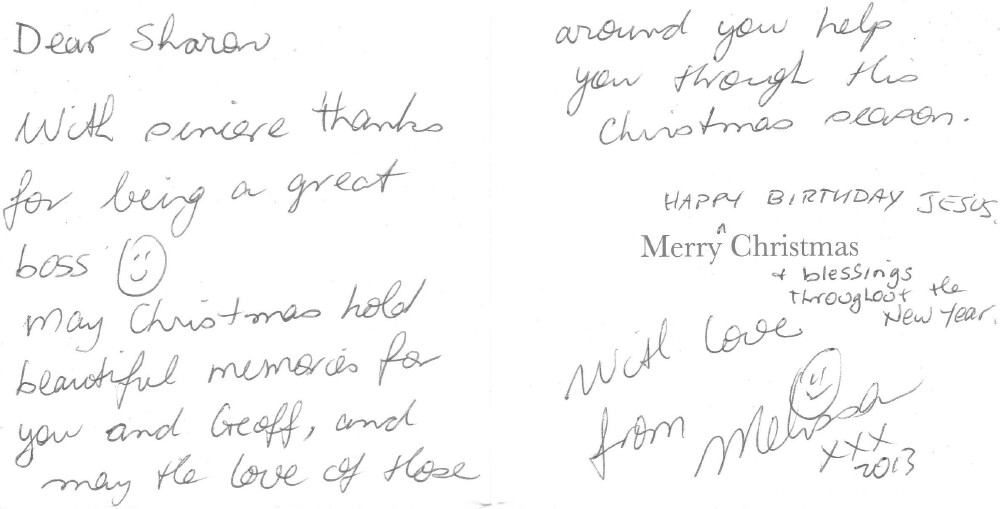 Dear Sharon
With sincere thanks
for being a great
boss
May Christmas hold
beautiful memories for
you and Geoff, and
may the love of those
around you help
you through this
Christmas season.
HAPPY BIRTHDAY JESUS.
^
Merry Christmas
+ blessings
throughout the
New Year.
With love
from Melissa
xxx
2013